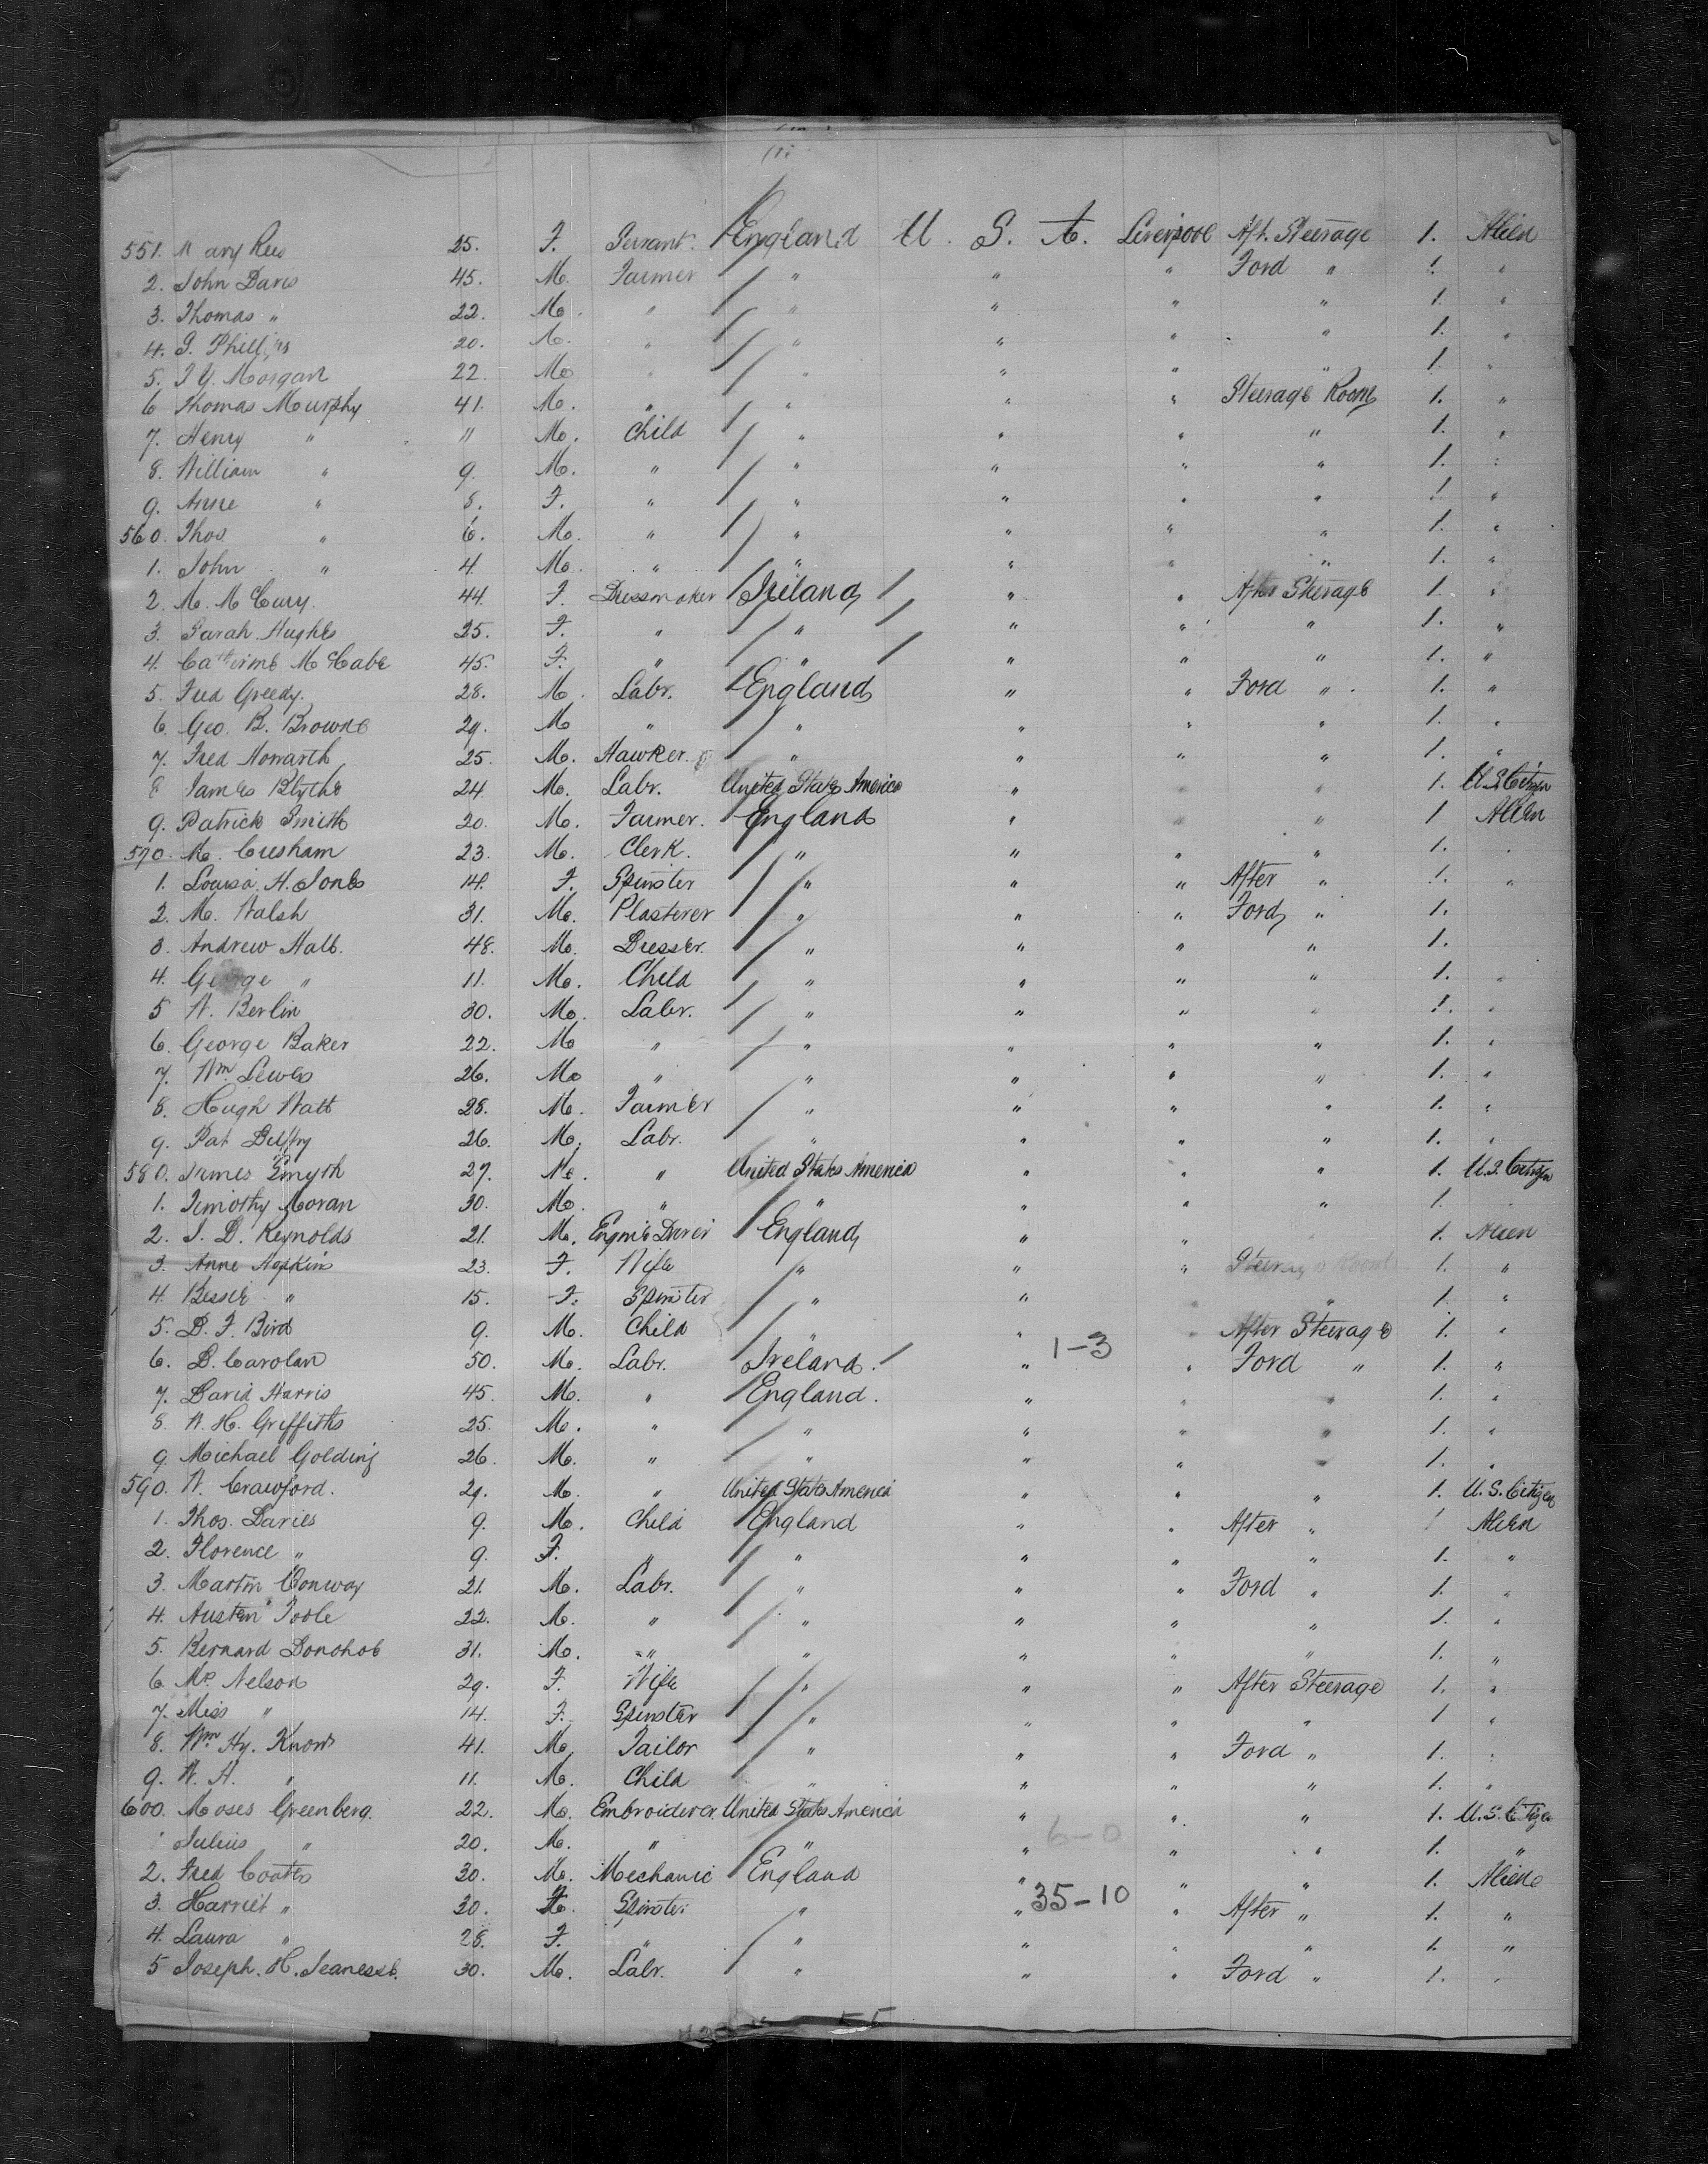 551. Mary Rees 25. F. Servant. England U. S. A. Liverpool Aft. Steerage 1. Alien
2. John Davis 45. M. Farmer " " " Ford " 1. "
3. Thomas " 22. M. " " " " " 1. "
4. J. Phillips 20. M. " " " " " 1. "
5. T Y. Morgan 22. M " " " " " 1. "
6 Thomas Murphy 41. M. " " " " Steerage Room 1. "
7. Henry " 11 M. Child " " " " 1. "
8. William " 9. M. " " " " " 1. "
9. Anne " 8. F. " " " " " 1. "
560. Thos. " 6. M. " " " " " 1. "
1. John " 4 M. " " " " " 1. "
2. M. McCury. 44. F. Dressmaker Ireland " " After Steerage 1. "
3. Sarah Hughes 25. F. " " " " " 1. "
4. Catherine McCabe 45. F. " " " " " 1. "
5. Fred Greedy. 28. M. Labr. England " " Ford " 1. "
6. Geo. B. Browne 29. M " " " " " 1. "
7. Fred Howarth 25. M. Hawker. " " " " 1. "
8 James Blythe 24. M. Labr. United States America " " 1. U.S Citizen
9. Patrick Smith 20. M. Farmer. England " " " 1 Alien
570. M. Cresham 23. M. Clerk. " " " " 1. "
1. Louisa H. Jones 14. F. Spinster " " " After " 1. "
2. M. Walsh 31. M. Plasterer " " " Ford " 1.
3. Andrew Hall. 48. M. Dresser. " " " " 1.
4. George " 11. M. Child " " " " 1. "
5 W. Berlin 30. M. Labr. " " " " 1. "
6. George Baker 22. M " " " " " 1. "
7. Wm Lewis 26. M " " " " " 1. "
8. Hugh Watt 28. M. Farmer " " " " 1. "
9. Pat Duffy 26. M. Labr. " " " " 1. "
580. James Smyth 27. M. " United States America " " " 1. U.S. Citizen
1. Timothy Moran 30. M. " " " " " 1.
2. J. D. Reynolds 21. M. Engine Driver England " " " 1. Alien
3. Anne Hopkins 23. F. Wife " " " Steerage Room 1. "
4. Bessie " 15. F. Spinster " " " 1. "
5. D. F. Bird 9. M. Child " " " After Steerage 1. "
6. D. Carolan 50. M. Labr. Ireland. " 1-3 " Ford " 1. "
7. David Harris 45. M. " England. " " " 1. "
8. W. H. Griffiths 25. M. " " " " " 1. "
9. Michael Golding 26. M. " " " " " 1. "
590. W. Crawford. 29. M. " United States America " " " 1. U.S. Citizen
1. Thos. Davies 9. M. Child England " " After " 1 Alien
2. Florence " 9. F. " " " " " 1. "
3. Martin Conway 21. M. Labr. " " " Ford " 1. "
4. Austin Toole 22. M. " " " " " 1. "
5. Bernard Donohoe 31. M. " " " " " 1. "
6. Mrs. Nelson 29. F. Wife " " " After Steerage 1. "
7. Miss " 14. F. Spinster " " " " 1 "
8. Wm Hy. Knows 41. M. Tailor " " " Ford " 1. "
9. W. H. " 11. M. Child " " " " 1. "
600. Moses Greenberg. 22. M. Embroiderer United States America " " " 1. U.S. Citizen
1 Julius " 20. M. " " " 6-0 " " 1. "
2. Fred Coates 30. M. Mechanic England " " " 1. Alien
3. Harriet " 30. F. Spinster " " 35-10 " After " 1. "
4. Laura " 28. F. " " " " " 1. "
5 Joseph. H. 30. M. Labr. " " " Ford " 1. "
55